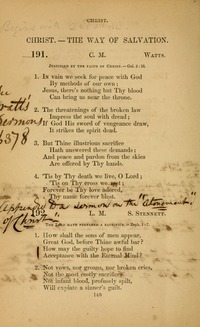 CHRIST.
CHRIST.—THE WAY OF SALVATION.
191. C. M. WATTS.
JUSTIFIED BY THE FAITH OF CHRIST.—Gal. 2: 16.
1. In vain we seek for peace with God
By methods of our own;
Jesus, there's nothing but Thy blood
Can bring us near the throne.
2. The threatenings of the broken law
Impress the soul with dread;
If God His sword of vengeance draw,
It strikes the spirit dead.
3. But Thine illustrious sacrifice
Hath answered these demands;
And peace and pardon from the skies
Are offered by Thy hands.
4. 'Tis by Thy death we live, O Lord;
'Tis on Thy cross we rest;
Forever be Thy love adored,
Thy name forever blest.
Sermons
Appended to a sermon on the "atonement"
of Christ
192. L. M. S. STENNETT.
THE LORD HATH PREPARED A SACRIFICE.—Zeph. 1:7.
1. How shall the sons of men appear,
Great God, before Thine awful bar?
How may the guilty hope to find
Acceptance with the Eternal Mind?
2. Not vows, nor groans, nor broken cries,
Not the most costly sacrifice,
Not infant blood, profusely spilt,
Will expiate a sinner's guilt.
140